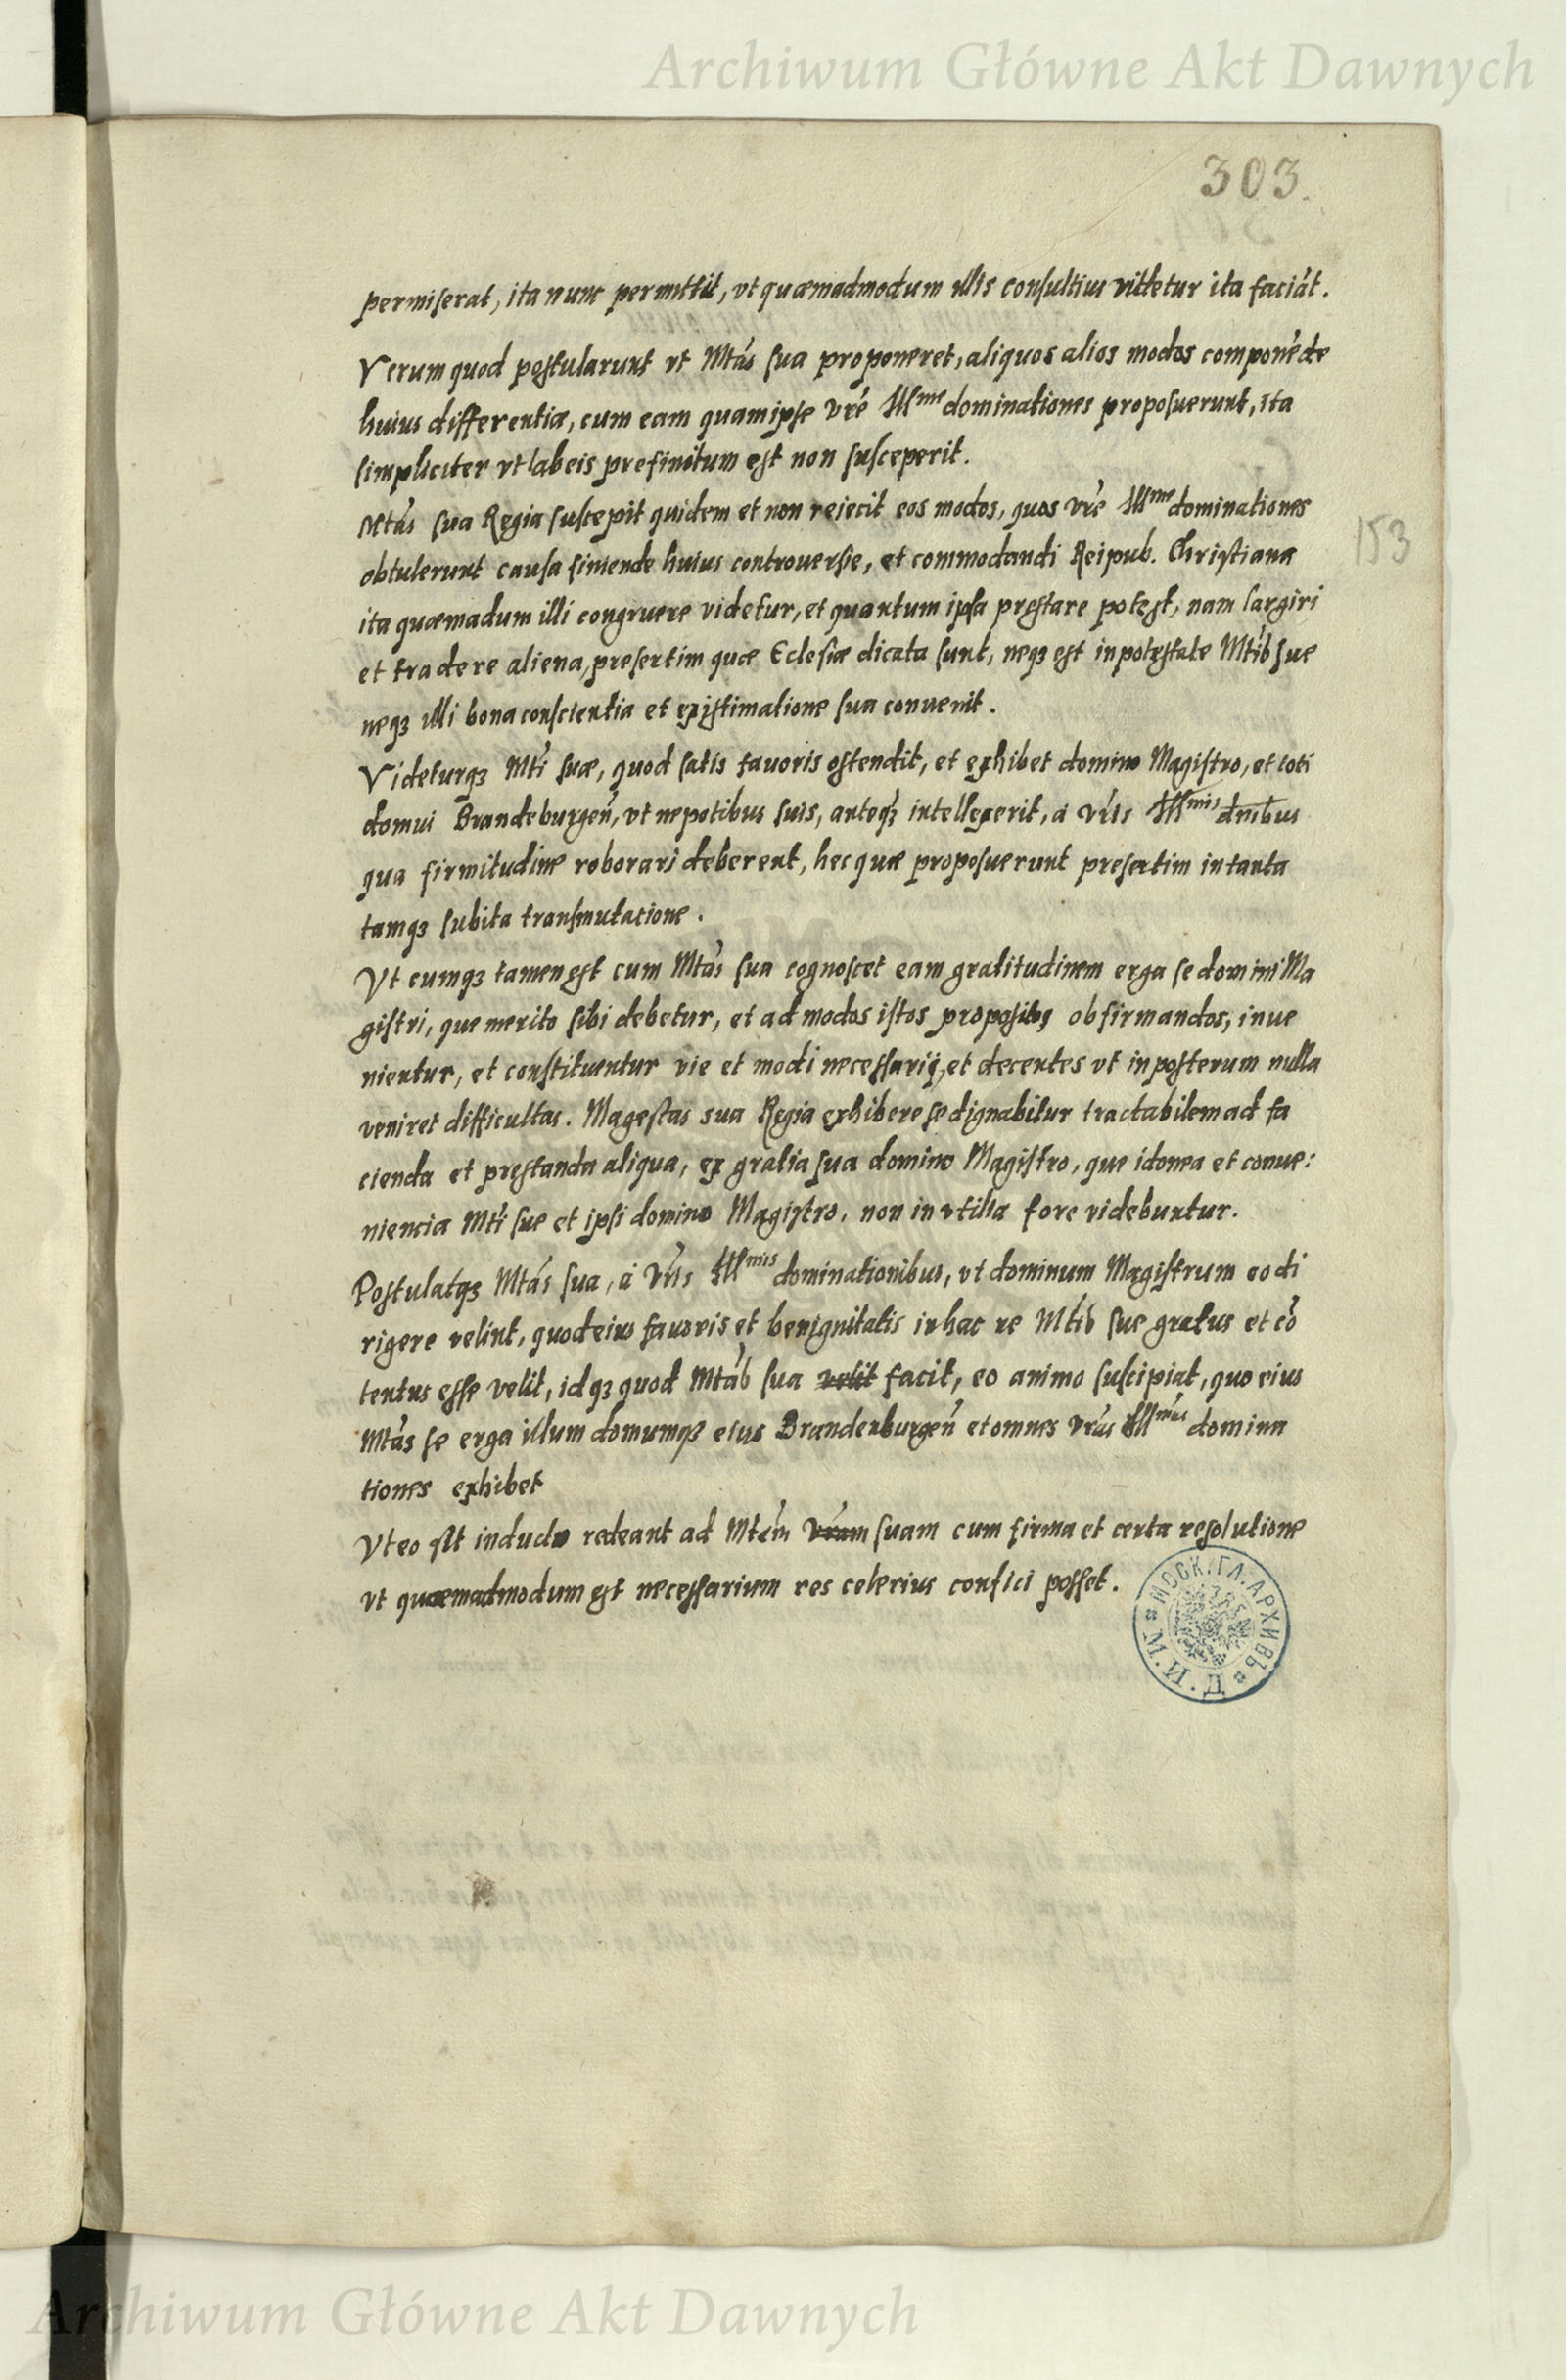 Archiwum Główne Akt Dawnych
303.
permiserat, ita nunc permittit, vt quæmadmodum illis consultius videtur ita faciāt.
Verum quod postularunt vt Mtás sua proponeret, aliquos alios modos componēde
huius differentiæ, cum eam quam ipse vrē Illme dominationes proposuerunt, ita
simpliciter vt ab eis prefinitum est non susceperit.
Mtás sua Regia suscepit quidem et non reiecit eos modos, quos vrē Illme dominationes
153
obtulerunt causa finiende huius controuersie, et commodandi Reipub. Christianæ
ita quæmadum illi congruere videtur, et quantum ipsa prestare potest, nam largiri
et tradere aliena, presertim quæ Eclesiæ dicata sunt, neqз est in potestate Mtis sue
neqз illi bona conscientia et existimatione sua conuenit.
Videturqз Mti suæ, quod satis fauoris ostendit, et exhibet domino Magistro, et toti
domui Brandeburgeñ, vt nepotibus suis, anteqз intellexerit, á vris Illmis dnibus
qua firmitudine roborari deberent, hec quæ proposuerunt presertim in tanta
tamqз subita transmutatione.
Vt cumqз tamen est cum Mtás sua cognoscet eam gratitudinem erga se domini Ma
gistri, que merito sibi debetur, et ad modos istos propositos obfirmandos, inue
nientur, et constituentur vie et modi necessarij, et decentes vt in posterum nulla
veniret difficultas. Magestas sua Regia exhibere se dignabitur tractabilem ad fa
cienda et prestanda aliqua, ex gratia sua domino Magistro, que idonea et conue:
niencia Mti sue et ipsi domino Magistro, non in vtilia fore videbuntur.
Postulatqз Mtás sua, á vris Illmis dominationibus, vt dominum Magistrum eo di
rigere velint, quod eius fauoris et benignitatis in hac re Mtis sue gratus et cō
tentus esse velit, idqз quod Mtás sua velit facit, eo animo suscipiat, quo eius
Mtás se erga illum domumqз eius Brandenburgeñ et omnes vrás Illmas domina
tiones exhibet
Vt eo redeant ad Mtém vram suam cum firma et certa resolutione
vt quæmadmodum est necessarium res celerius confici posset.
МОСК. ГЛ. АРХИВЪ * М. И. Д. *
Archiwum Główne Akt Dawnych